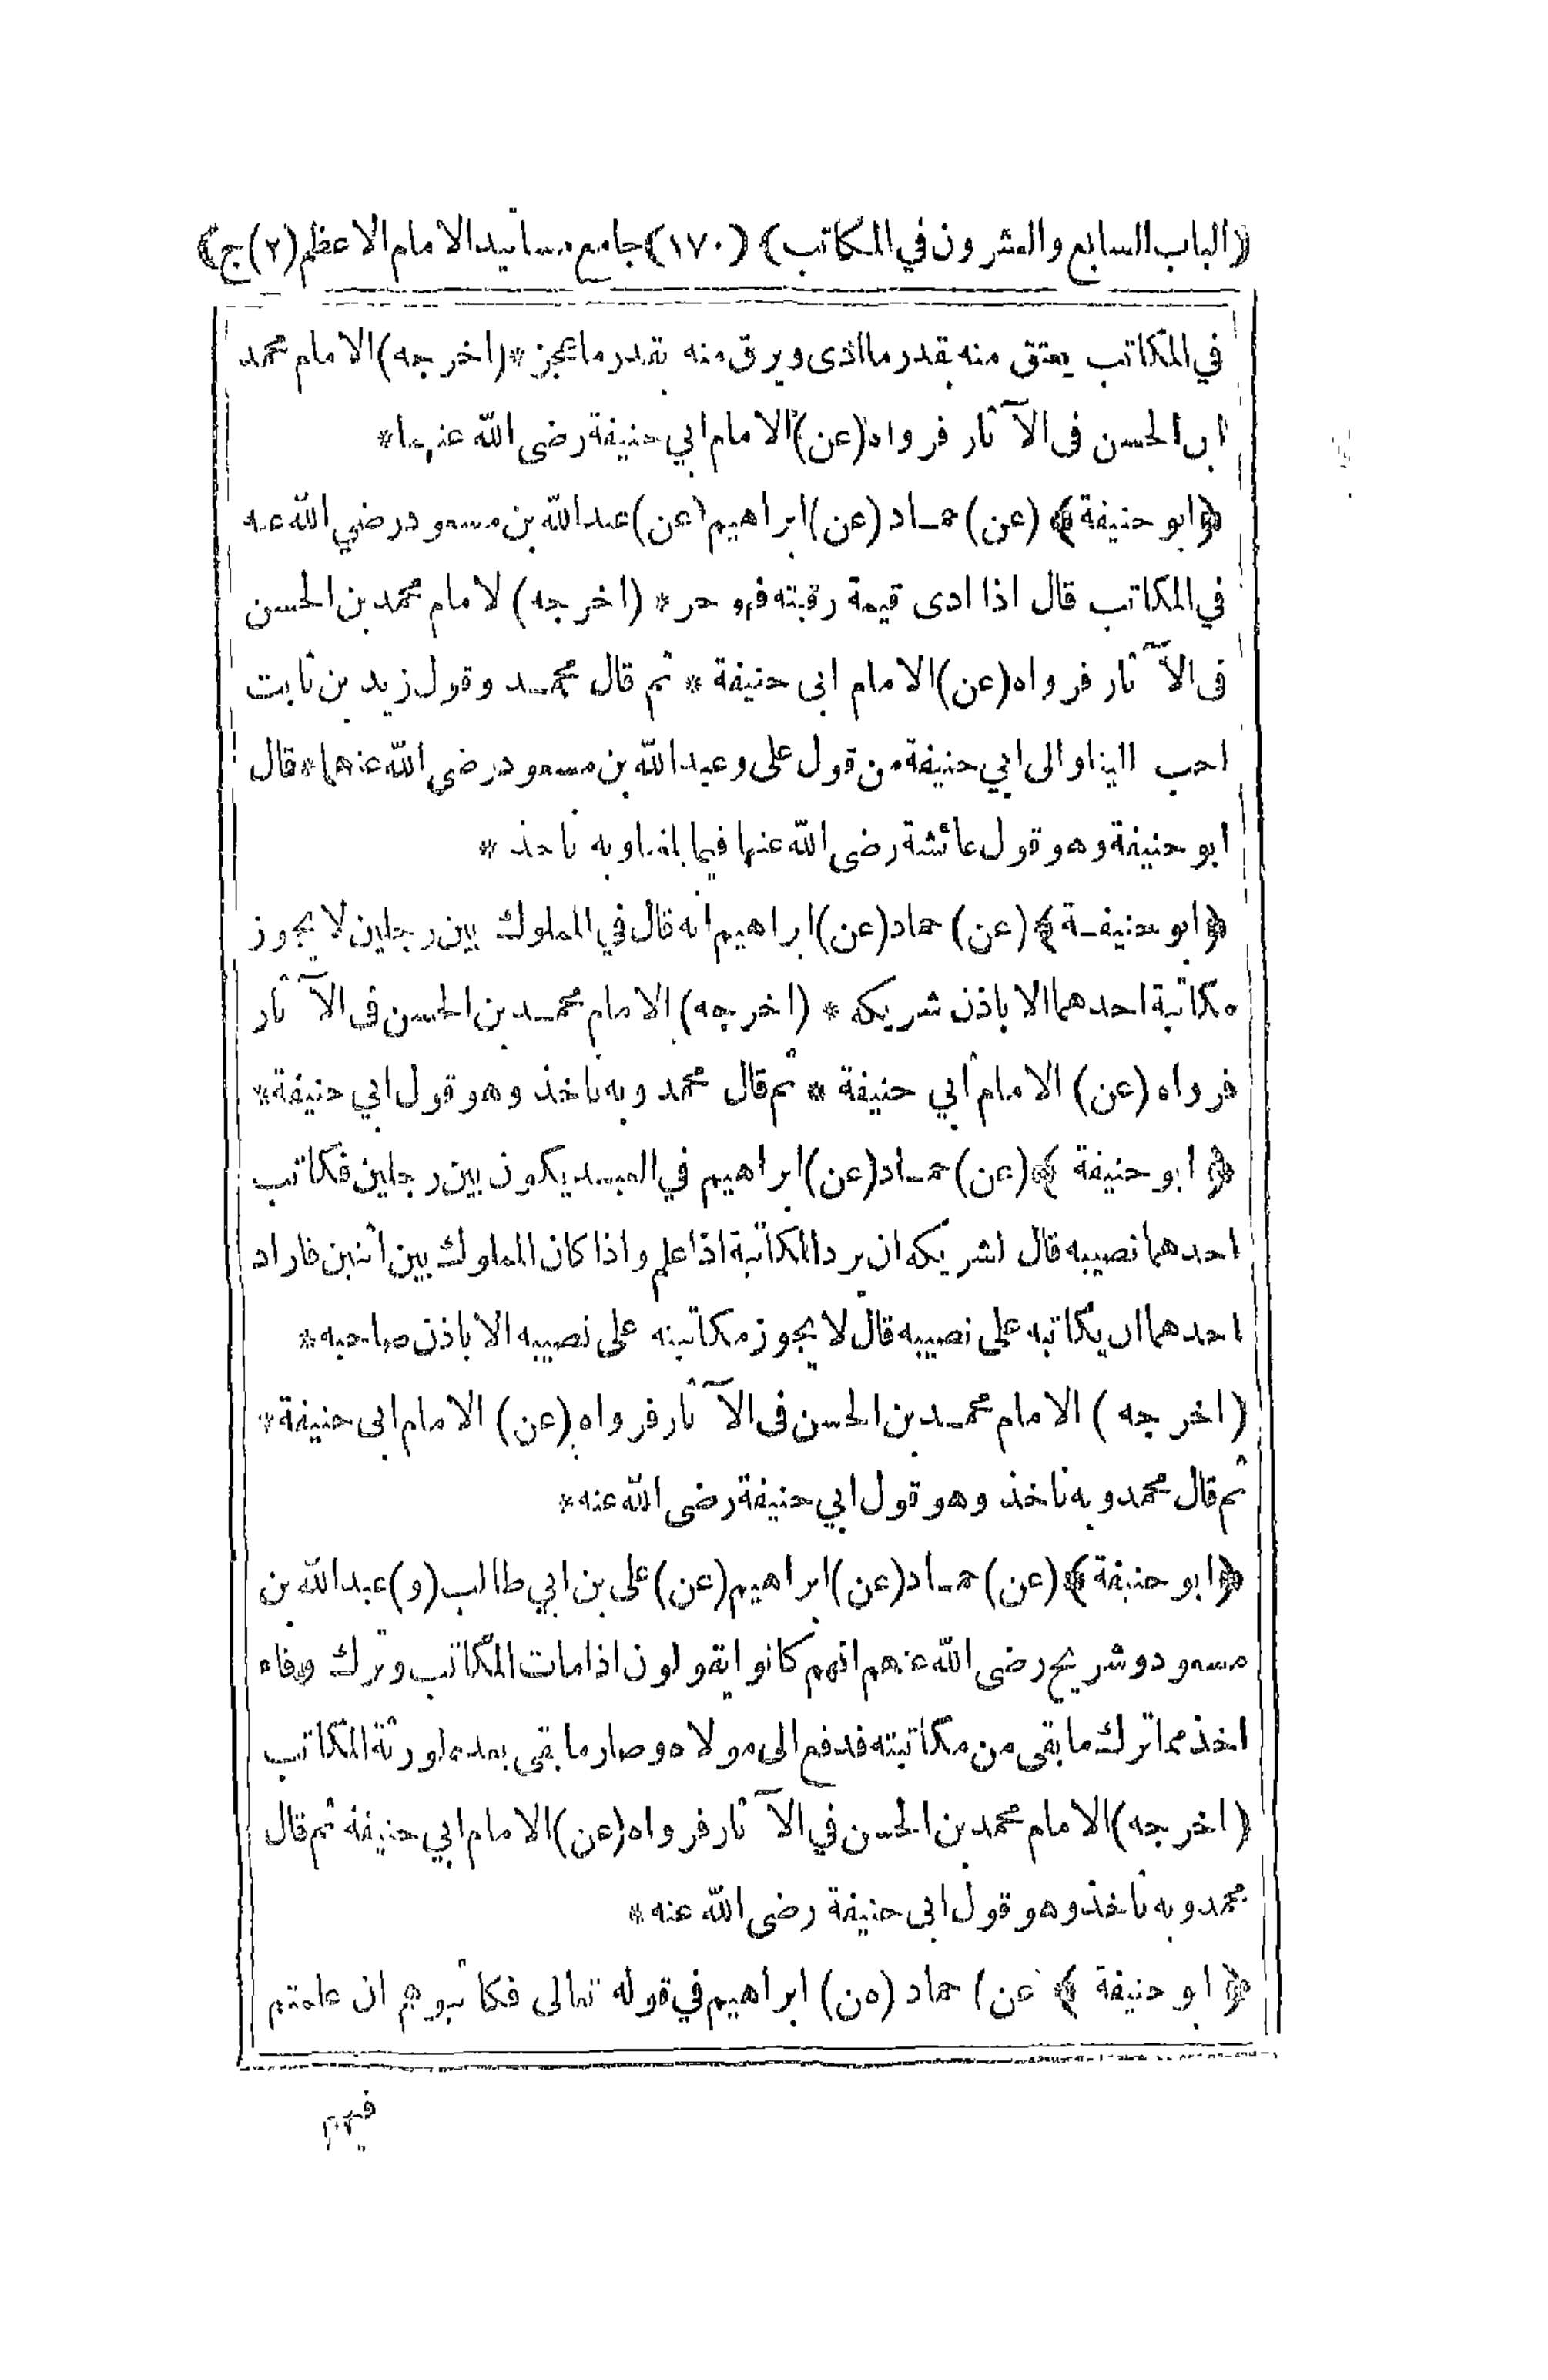 ﴿الباب السابع والعشرون في المكاتب﴾ (١٧٠) ﴿جامع مسانيد الامام الاعظم (٢) ج﴾
في المكاتب يعتق منه بقدر ما ادى ويرق منه بقدر ما عجز * (اخرجه) الامام محمد
ابن الحسن فى الآثار فرواه (عن) الامام ابي حنيفة رضى الله عنهما *
﴿ابو حنيفة﴾ (عن) حماد (عن) ابراهيم (عن) عبد الله بن مسعود رضي الله عنه
في المكاتب قال اذا ادى قيمة رقبته فهو حر * (اخرجه) لامام محمد بن الحسن
فى الآثار فرواه (عن) الامام ابى حنيفة * ثم قال محمد وقول زيد بن ثابت
احب الينا والى ابي حنيفة من قول على وعبد الله بن مسعود رضى الله عنهما * قال
ابو حنيفة وهو قول عائشة رضى الله عنها فيما بلغنا وبه ناخذ *
﴿ابو حنيفة﴾ (عن) حماد (عن) ابراهيم انه قال في المملوك بين رجلين لا يجوز
مكاتبة احدهما الا باذن شريكه * (اخرجه) الامام محمد بن الحسن فى الآثار
فرواه (عن) الامام ابي حنيفة * ثم قال محمد وبه ناخذ وهو قول ابي حنيفة *
﴿ابو حنيفة﴾ (عن) حماد (عن) ابراهيم في العبد يكون بين رجلين فكاتب
احدهما نصيبه قال لشريكه ان يرد المكاتبة اذا علم واذا كان المملوك بين اثنين فاراد
احدهما ان يكاتبه على نصيبه قال لا يجوز مكاتبته على نصيبه الا باذن صاحبه *
(اخرجه) الامام محمد بن الحسن فى الآثار فرواه (عن) الامام ابى حنيفة *
ثم قال محمد وبه ناخذ وهو قول ابي حنيفة رضى الله عنه *
﴿ابو حنيفة﴾ (عن) حماد (عن) ابراهيم (عن) على بن ابي طالب (و) عبد الله بن
مسعود وشريح رضى الله عنهم انهم كانوا يقولون اذا مات المكاتب وترك وفاء
اخذ مما ترك ما بقى من مكاتبته فدفع الى مولاه وصار ما بقى بعده لورثة المكاتب
(اخرجه) الامام محمد بن الحسن في الآثار فرواه (عن) الامام ابي حنيفة ثم قال
محمد وبه ناخذ وهو قول ابى حنيفة رضى الله عنه *
﴿ابو حنيفة﴾ (عن) حماد (عن) ابراهيم في قوله تعالى فكاتبوهم ان علمتم
فيهم